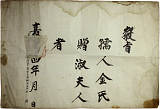 敎旨
孺人金氏
贈淑夫人
者
嘉
四年 月 日